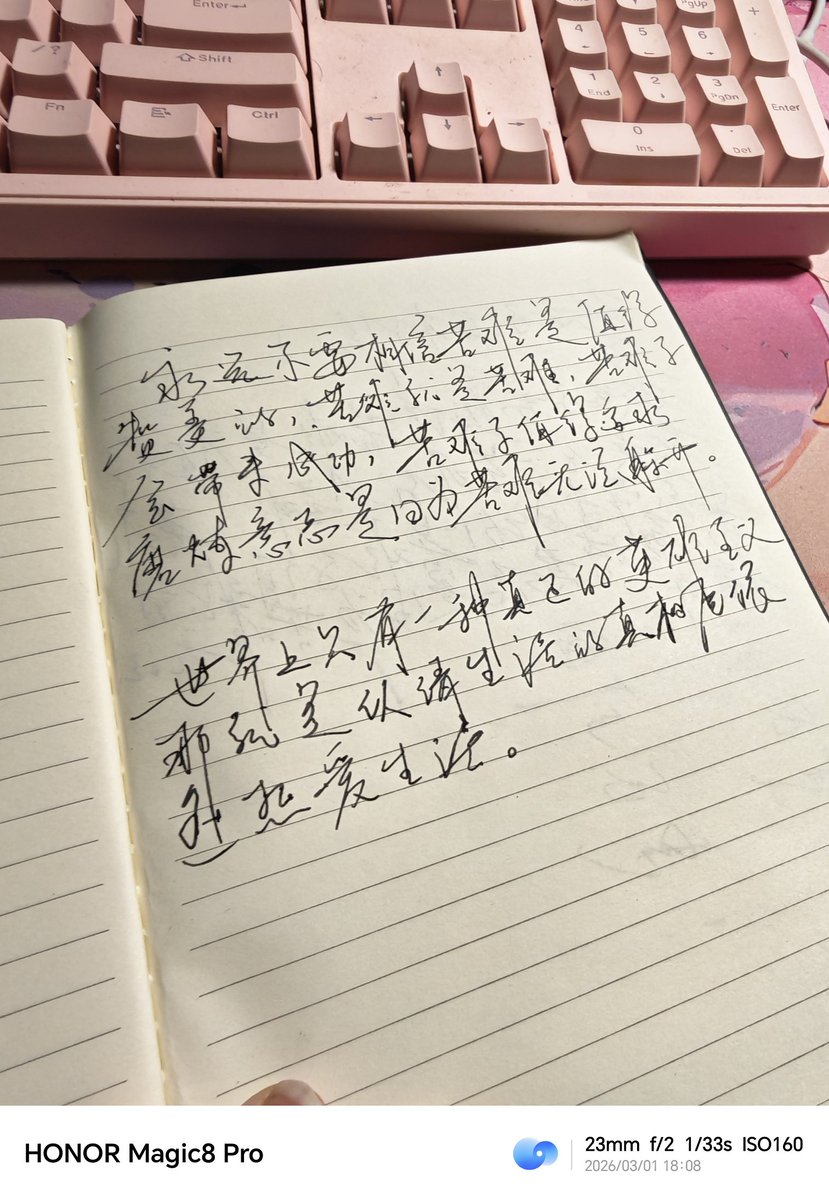 Enter
+
Shift
Fn
Ctrl
4
5
6
1
End
2
3
PgDn
Enter
0
Ins
.
Del
永远不要相信苦难是值得
赞美的，苦难就是苦难，苦难不
会带来成功，苦难不值得追求
磨炼意志是因为苦难无法躲开。
世界上只有一种真正的英雄主义
那就是认清生活的真相后依
热爱生活。
HONOR Magic8 Pro
23mm f/2 1/33s ISO160
2026/03/01 18:08